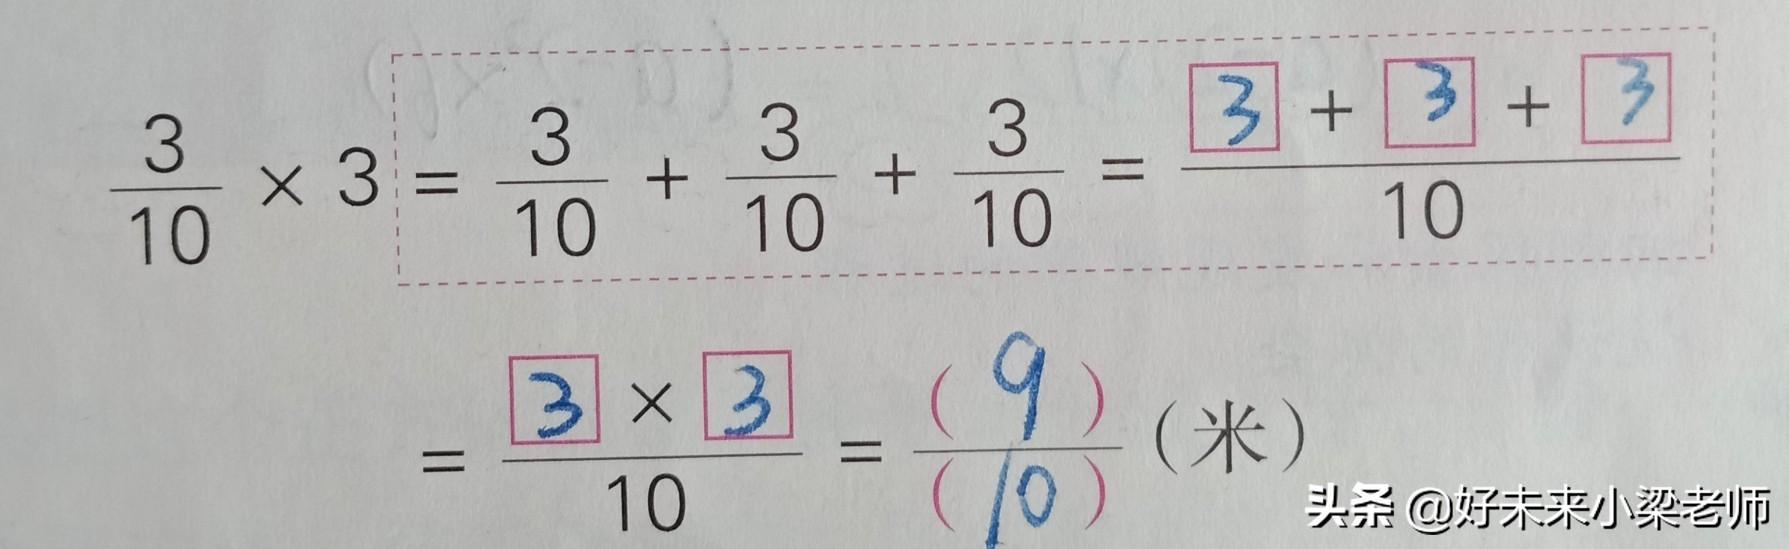 3/10 × 3 = 3/10 + 3/10 + 3/10 = (3 + 3 + 3)/10
= (3 × 3)/10 = (9)/(10) (米)
头条 @好未来小梁老师